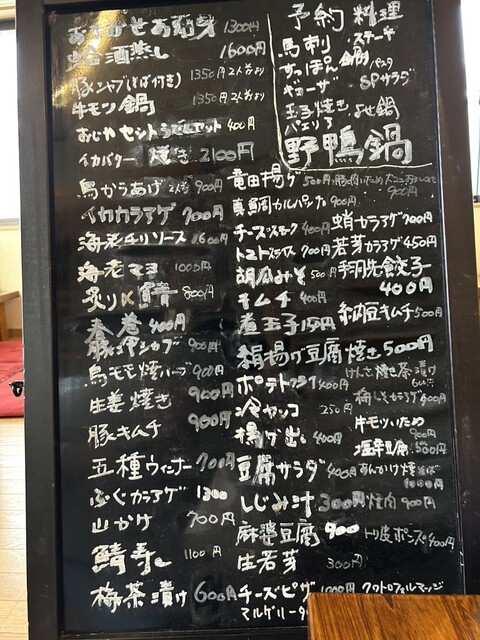 おまかせお刺身 1300円
酒蒸し 1600円
豚シャブ(そば付き) 1350円 2人前より
牛モツ鍋 1350円 2人前より
おじやセット うどんセット 400円
イカバター焼き 2100円
鳥からあげ 2人前 900円
イカカラアゲ 700円
海老チリソース 1600円
海老マヨ 1000円
炙り〆鯖 800円
春巻 400円
豚冷シャブ 900円
鳥モモ焼ハーブ 900円
生姜焼き 900円
豚キムチ 900円
五種ウィンナー 700円
ふぐカラアゲ 1300
山かけ 700円
鯖寿し 1100円
梅茶漬け 600円
予約料理
馬刺 ステーキ
すっぽん鍋 パスタ
ギョーザ SPサラダ
玉子焼き よせ鍋
パエリア
野鴨鍋
竜田揚げ 500円
900円
真鯛カルパッチョ 900円
チーズ 400円 蛸カラアゲ 700円
トマトスライス 700円 若芽カラアゲ 450円
胡瓜みそ 500円 手羽先餃子
キムチ 400円 400円
煮玉子 150円 納豆キムチ 500円
絹揚げ豆腐焼き 500円
ポテトフライ 400円 けんさ焼き茶漬け
600円
冷ヤッコ 250円 梅しそカラアゲ 900円
牛モツいため
揚げ出し 400円 900円
塩辛豆腐 500円
豆腐サラダ 400円 あんかけ焼そば
1000円
しじみ汁 300円 焼肉 900円
麻婆豆腐 900 トリ皮ポンズ 400円
生若芽 300円
チーズピザ 1000円 クワトロフォルマッジ
マルゲリータ